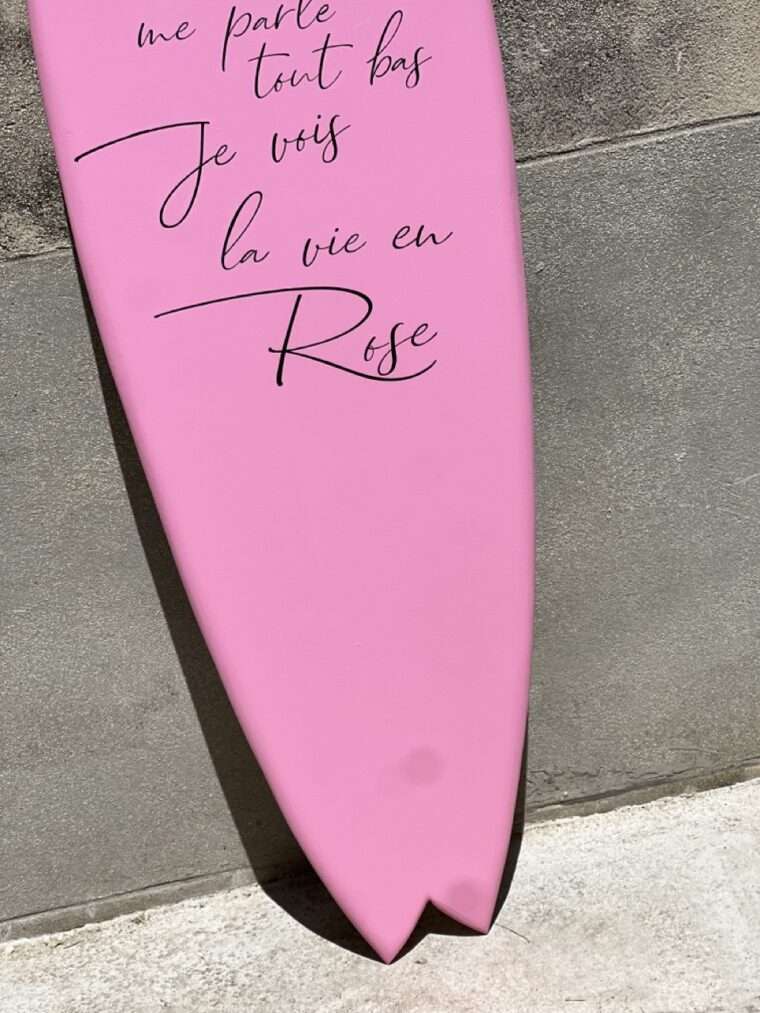 me parle
tout bas
Je vois
la vie en
Rose